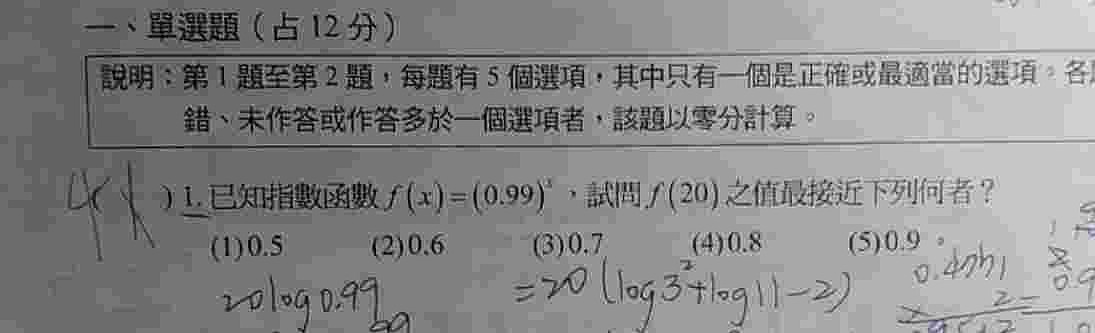 一、單選題（占 12 分）
說明：第 1 題至第 2 題，每題有 5 個選項，其中只有一個是正確或最適當的選項。各
錯、未作答或作答多於一個選項者，該題以零分計算。
) 1. 已知指數函數 f(x)=(0.99)^x，試問 f(20) 之值最接近下列何者？
(1)0.5 (2)0.6 (3)0.7 (4)0.8 (5)0.9。
20log0.99 =20(log3²+log11-2)